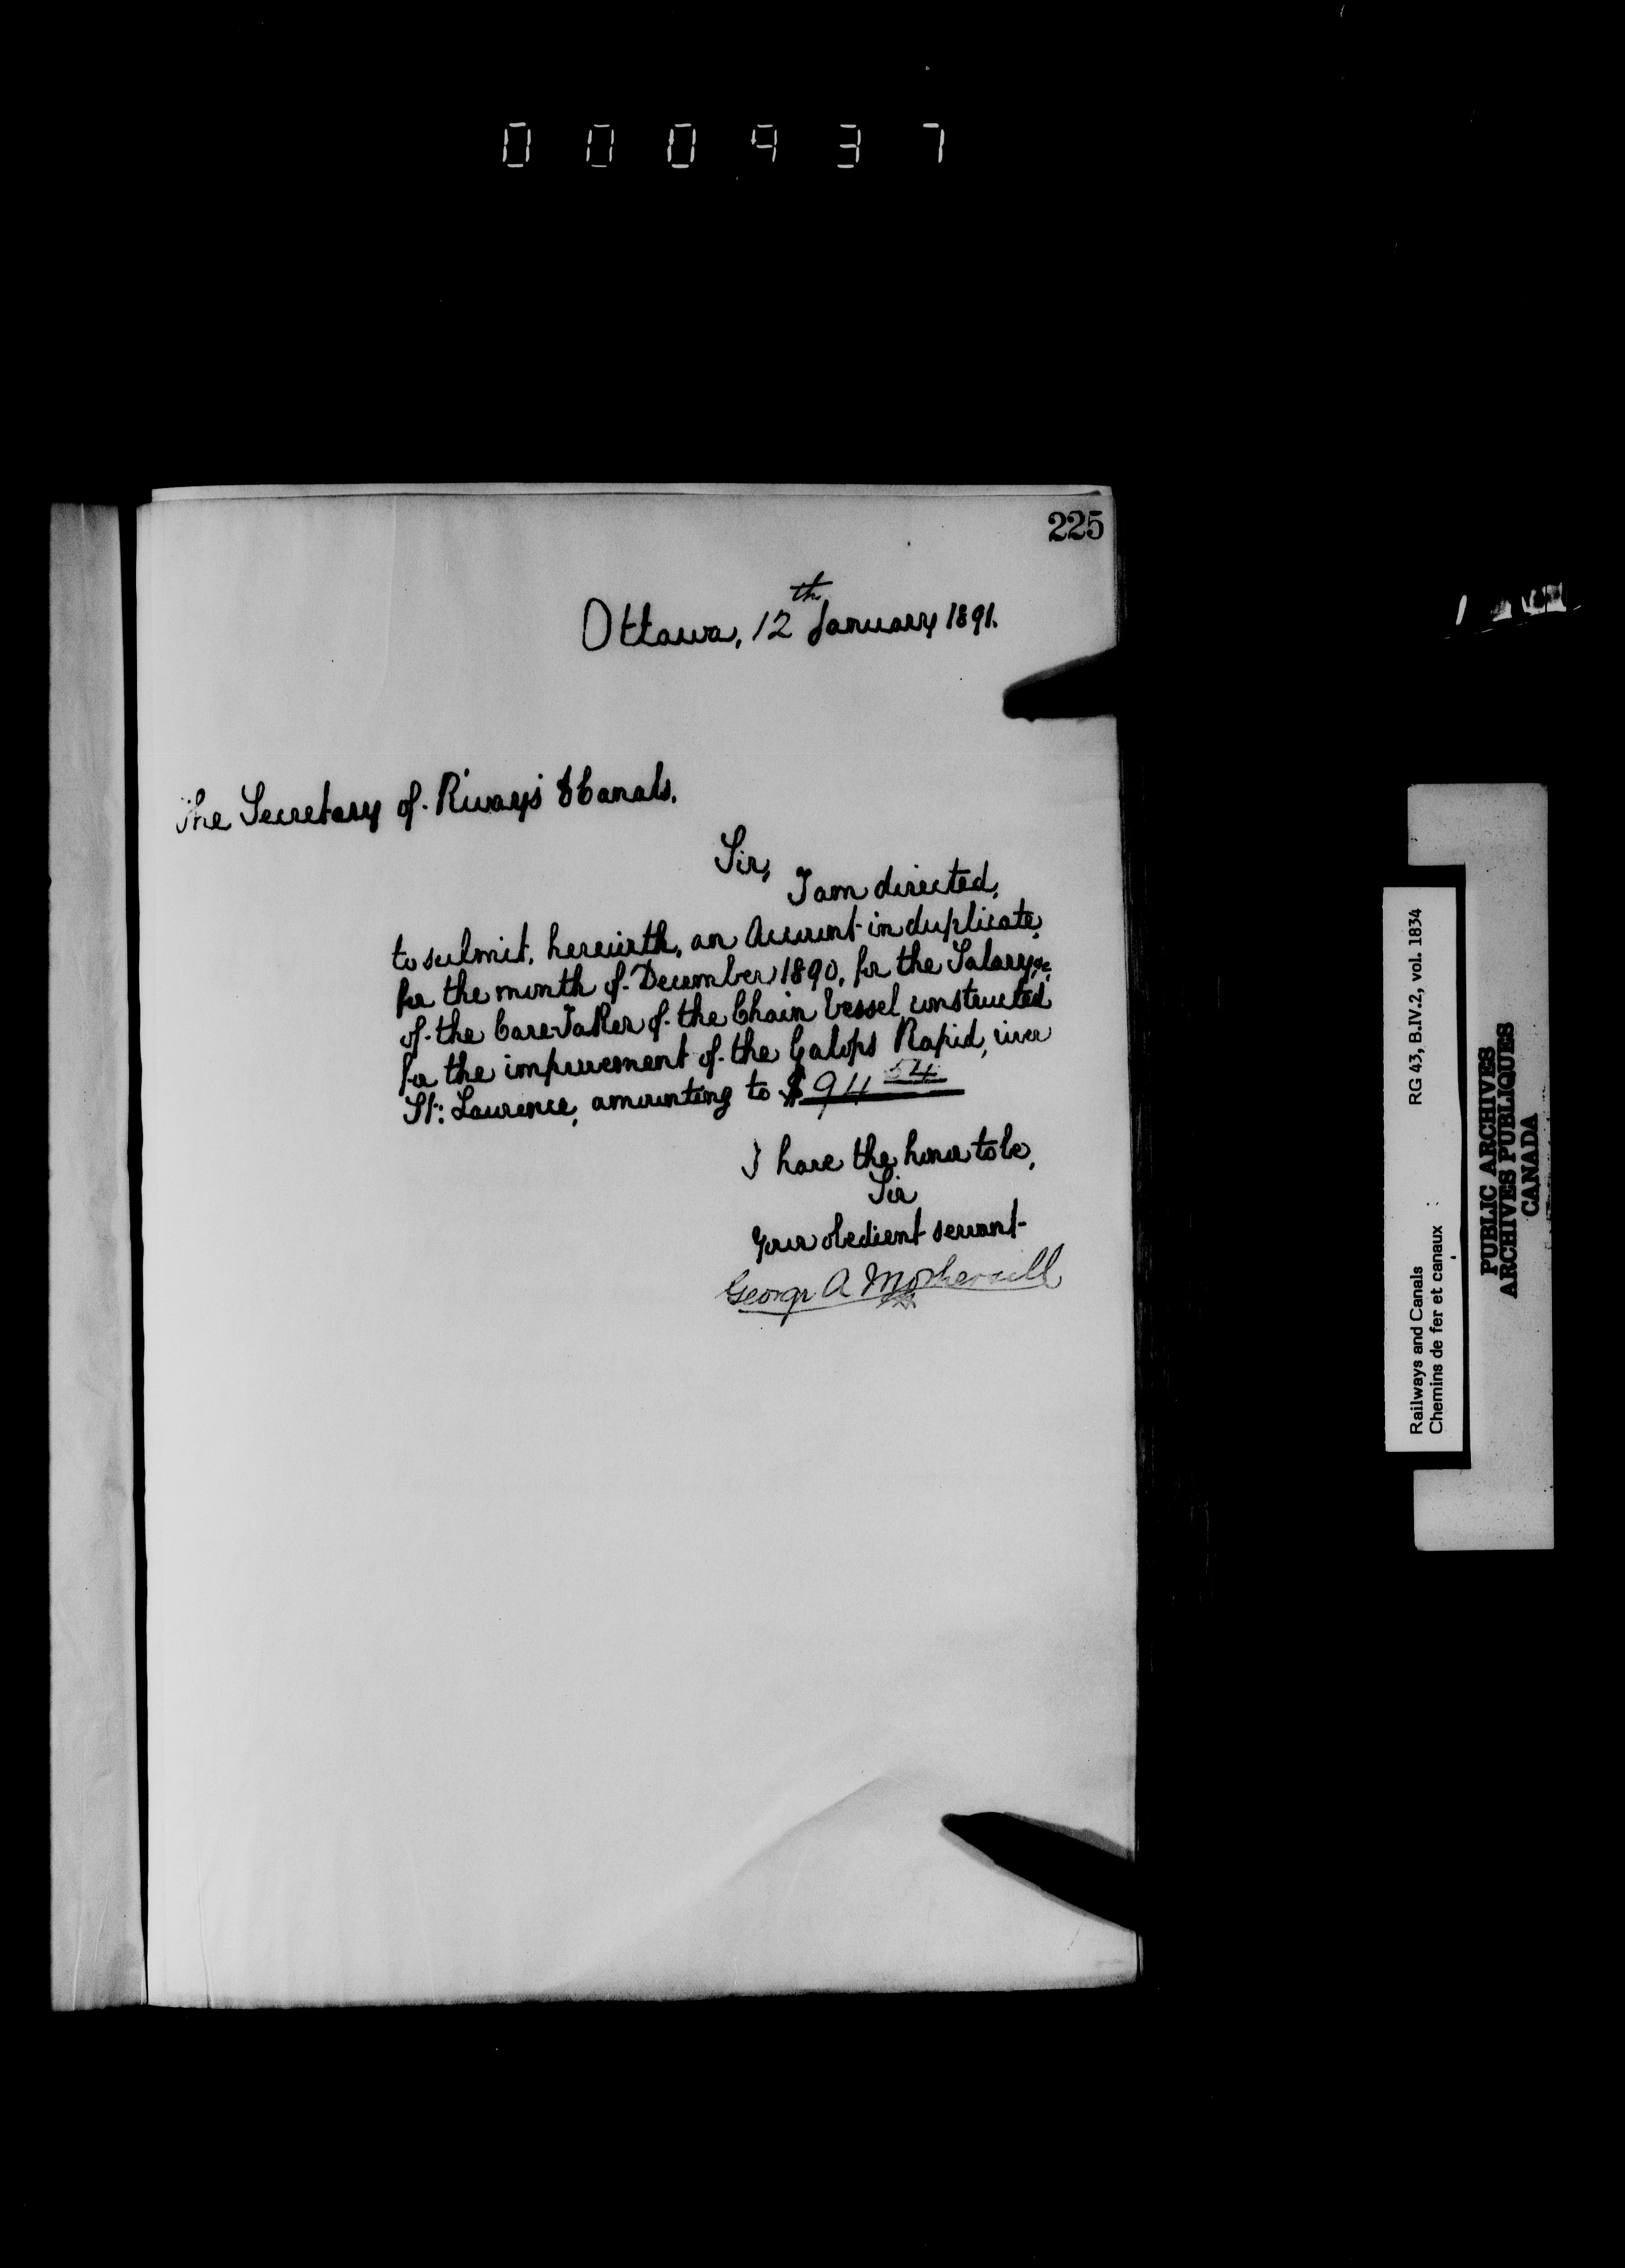 000937
225
Ottawa, 12th January 1891.
The Secretary of Rways & Canals.
Sir,
I am directed,
to submit, herewith, an Account in duplicate,
for the month of December 1890, for the Salary, &c,
of the Care-Taker of the Chain Vessel constructed
for the improvement of the Galops Rapid, river
St: Laurence, amounting to $94 54
I have the honor to be,
Sir
Your obedient servant
George A Mothersill
Railways and Canals RG 43, B.IV.2, vol. 1834
Chemins de fer et canaux :
PUBLIC ARCHIVES
ARCHIVES PUBLIQUES
CANADA